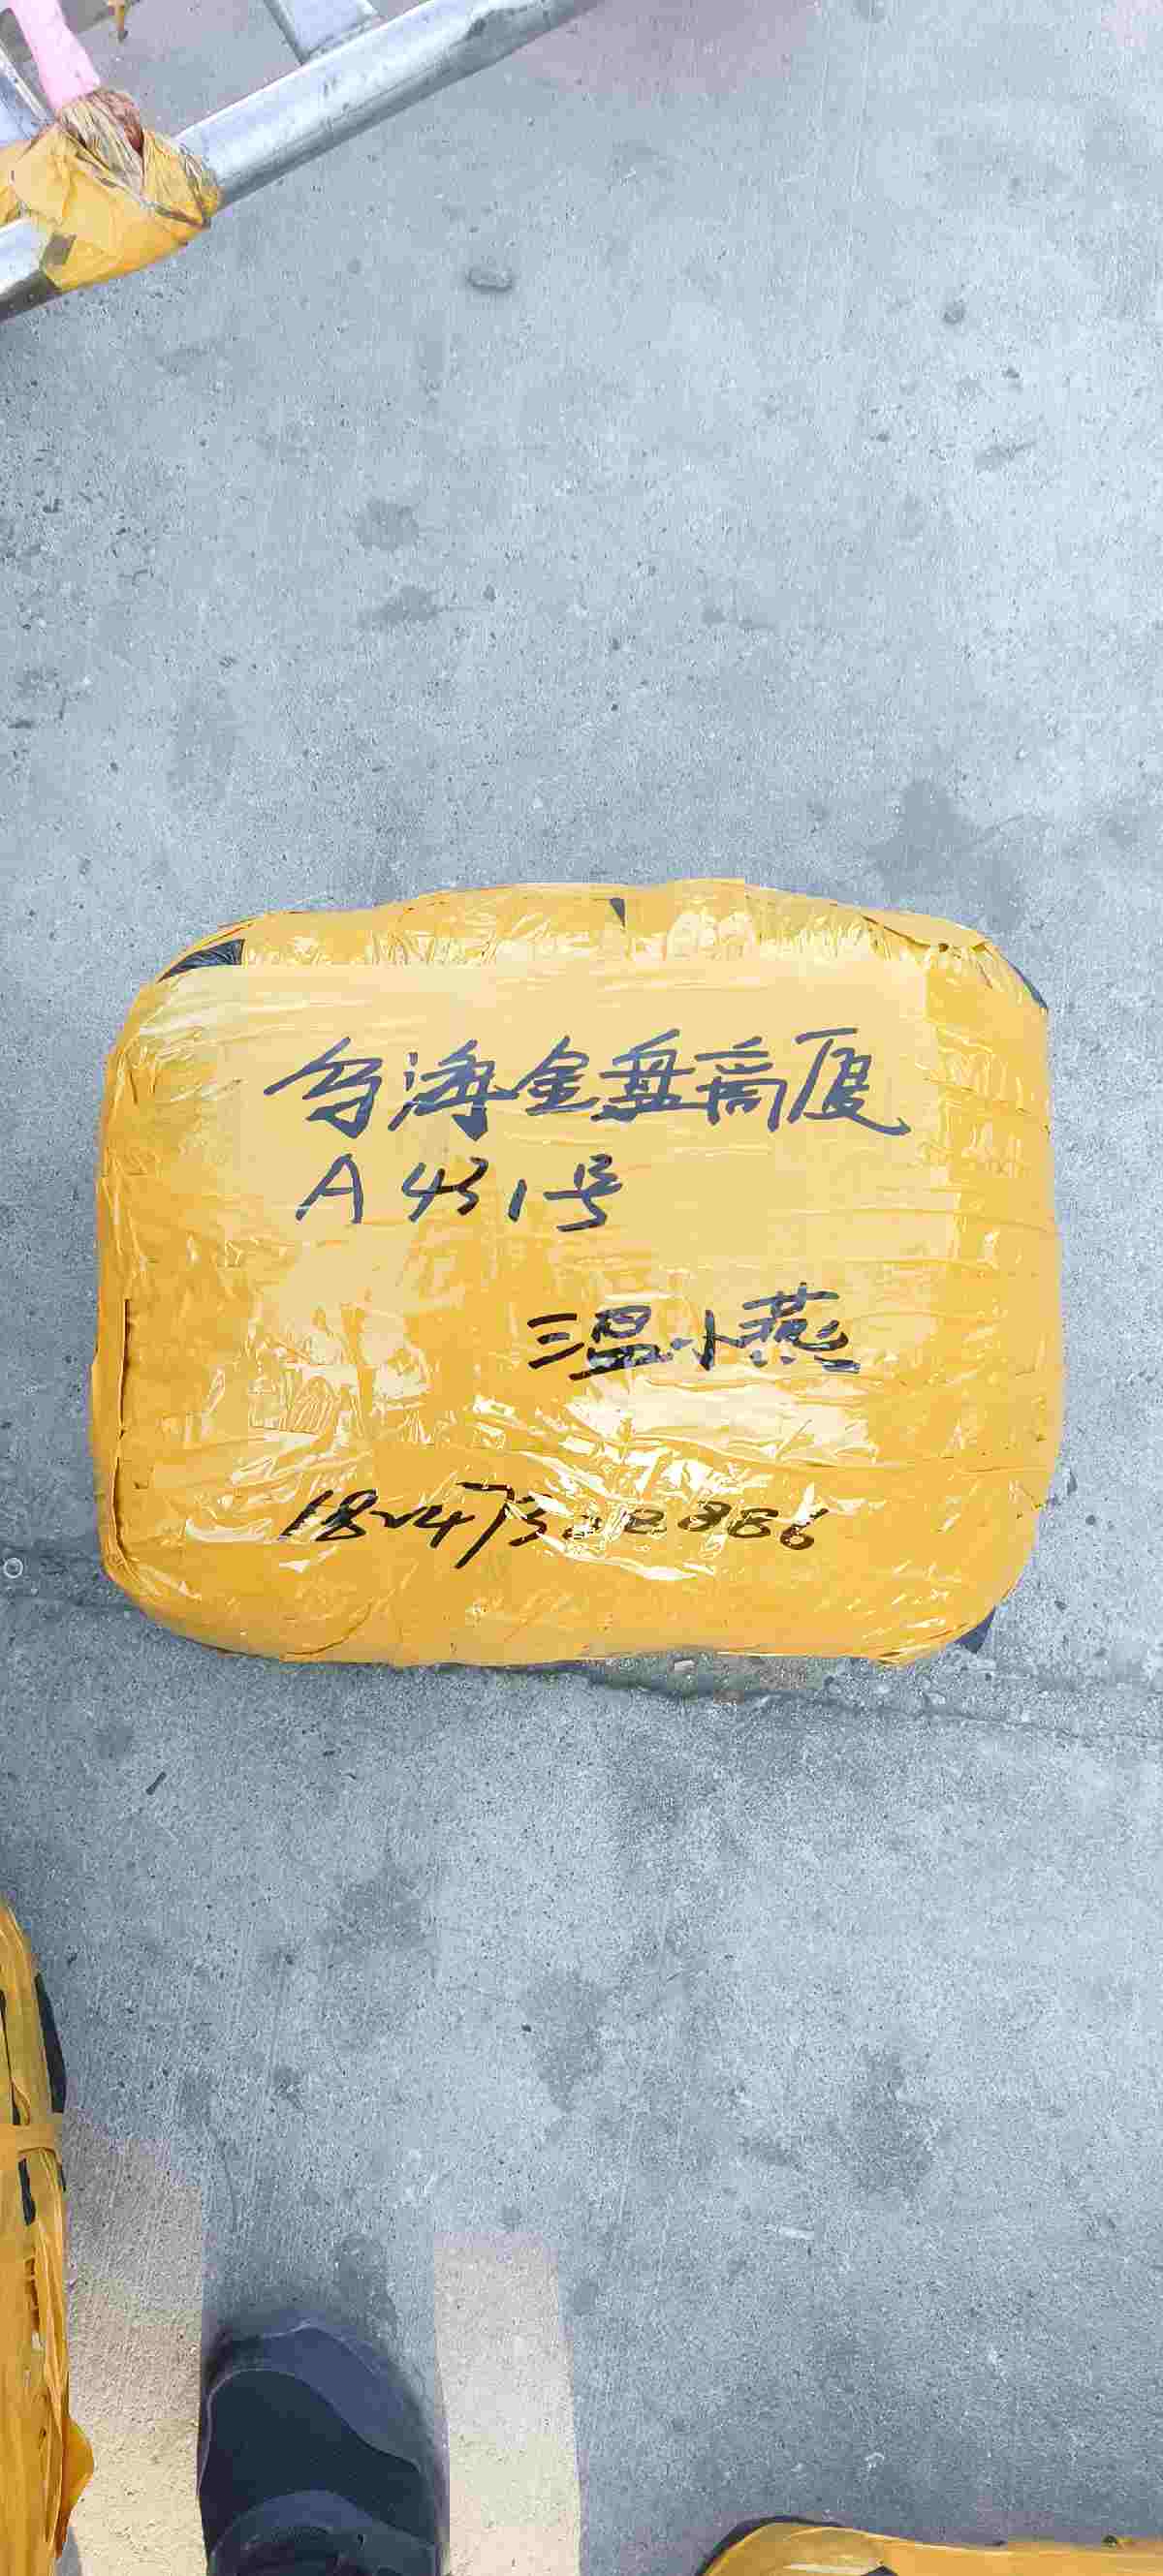 乌海金盘商厦
A431号
温小燕
18247308886